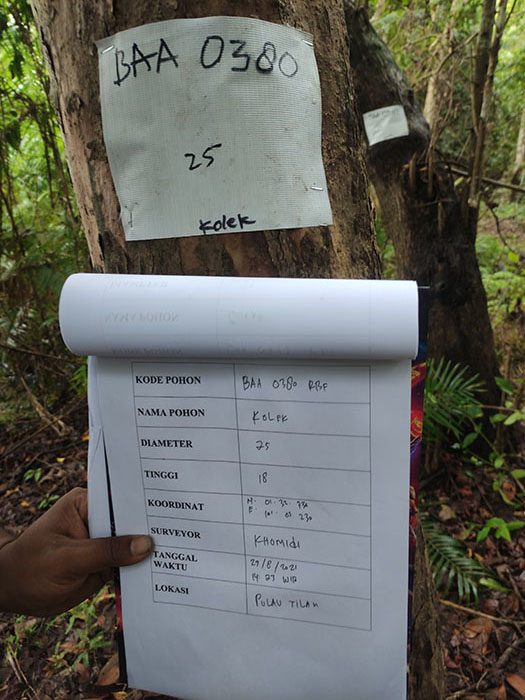 BAA 0380
25
Kolek
KODE POHON BAA 0380 RBF
NAMA POHON KOLEK
DIAMETER 25
TINGGI 18
KOORDINAT N. 01. 32. 780
E. 101. 03 230
SURVEYOR KHOMIDI
TANGGAL 29/8/2021
WAKTU 14:27 WIB
LOKASI PULAU TILAN